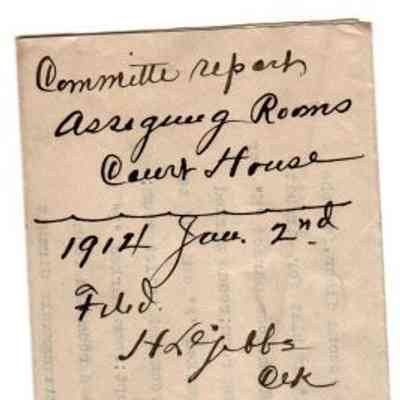 Committe report
Assigning Rooms
Court House
1914 Jan. 2nd
Filed.
H L Gibbs
Clk